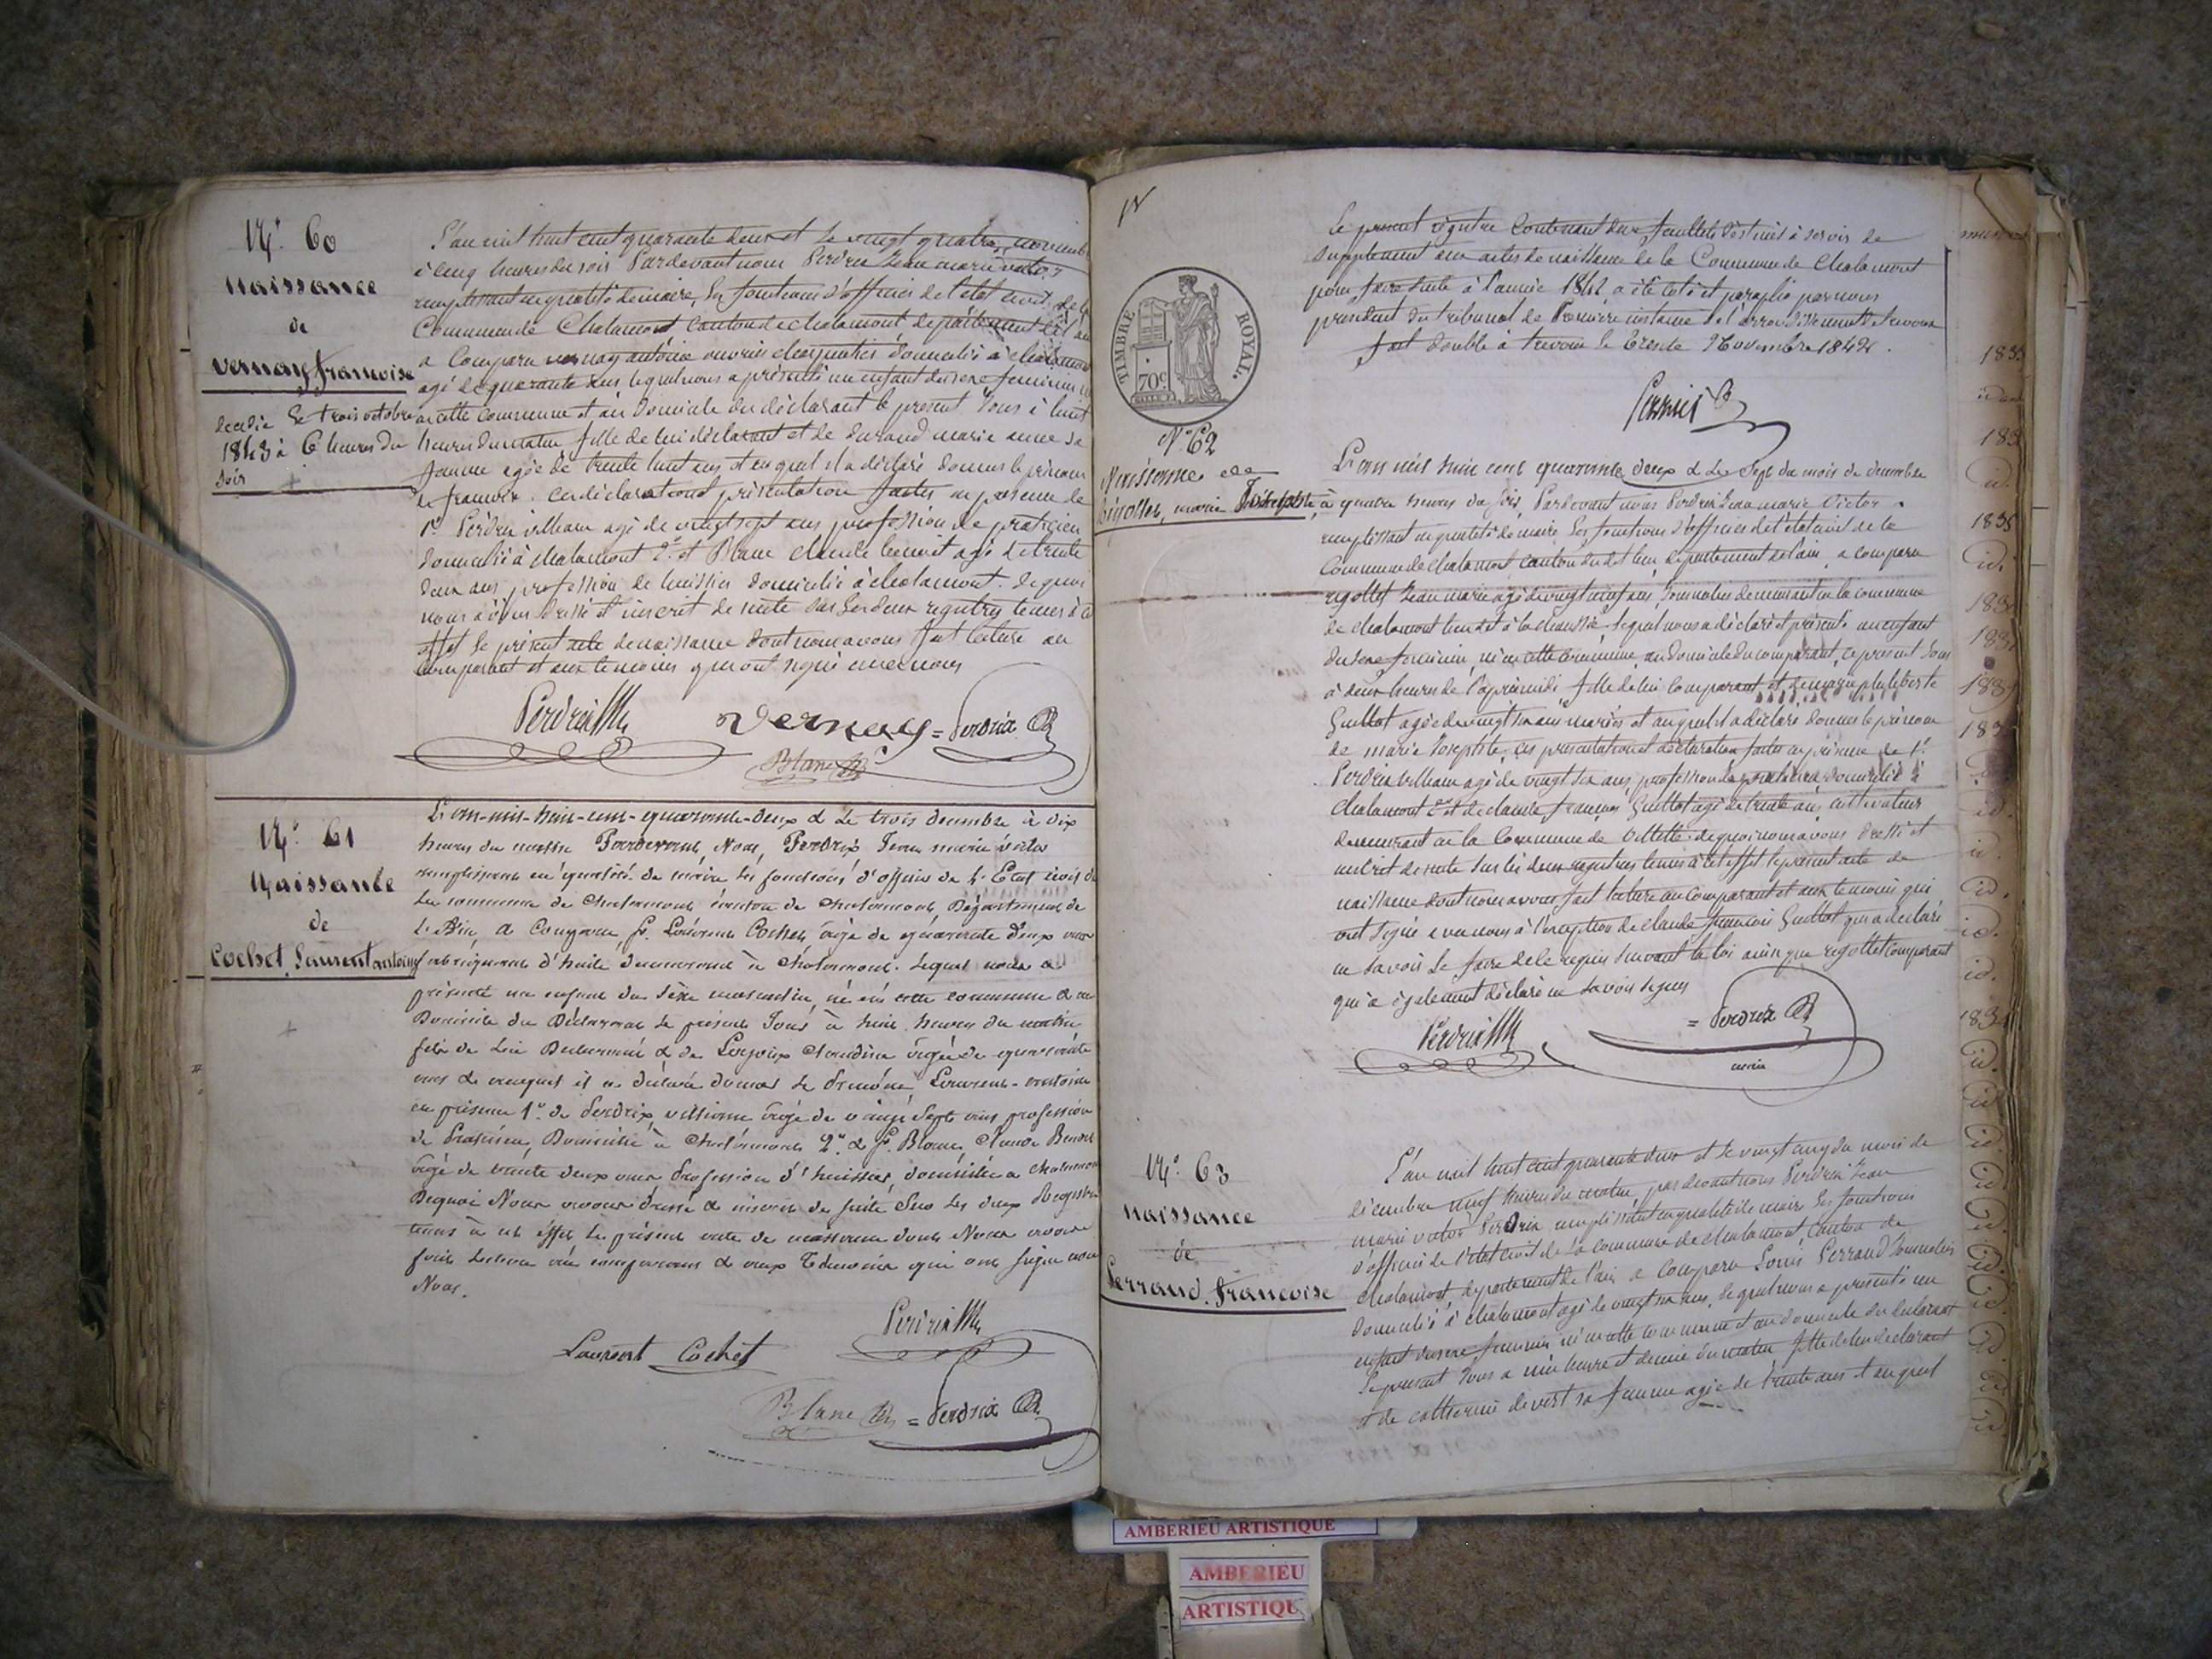 N°. 60
Naissance
de
Vernay françoise
decedée le trois octobre
1843 à 6 heures du
soir
L'an mil huit cent quarante deux et le vingt quatre novembre
à cinq heures du soir Pardevant nous Perdrix Jean marie victor
remplissant en qualité de maire, les fonctions d'officier de l'état civil de la
Commune de Chalamont canton de chalamont departement de l'ain
a comparu vernay antoine ouvrier charpentier domicilié à chalamont
agé de quarante ans lequel nous a présenté un enfant du sexe feminin né
en cette commune et au Domicile du déclarant le present Jour à huit
heures du matin fille de lui déclarant et de durand marie anne sa
femme agée de trente huit ans et auquel il a déclaré donner le prénom
de françoise. ces déclaration et présentation faites en présence de
1° Perdrix villiam agé de vingt sept ans profession de praticien
domicilié à chalamont 2° et Blanc claude benoit agé de trente
deux ans, profession de huissier domicilié à chalamont. de quoi
nous avons dressé et inscrit de suite sur les deux registres tenus à cet
effet le présent acte de naissance dont nous avons fait lecture au
comparant et aux temoins qui ont signé avec nous
Perdrix
Vernay = Perdrix
Blanc
N°. 61
Naissance
de
Cochet, Laurent antoine
L'an-mil-huit-cent-quarante-deux & Le trois decembre à dix
heures du matin Pardevant, Nous, Perdrix Jean marie victor
remplissant en qualité de maire les fonctions d'officier de L'Etat civil de
La commune de Chalamont, canton de Chalamont, Département de
L'Ain, a Comparu Sr. Laurent Cochet, âgé de quarante deux ans
fabriquant d'huile demeurant à Chalamont. Lequel nous a
présenté un enfant du sèxe masculin, né en cette commune & au
Domicile du Déclarant Le présent Jour à huit heures du matin
fils de Lui Déclarant & de Claudine âgée de quarante
ans & auquel il a déclaré donner Le Prénom Laurent-antoine
en présence 1° de Perdrix, villiame âgé de vingt Sept ans profession
de Praticien, Domicilié à Chalamont 2° & Sr. Blanc, Claude Benoit
âgé de trente deux ans Profession d'huissier, domicilié a chalamont
Dequoi Nous avons dressé & inscrit de suite Sur Les deux Registres
tenus à cet éffet Le présent acte de naissance dont Nous avons
fait Lecture au comparant & aux Témoins qui ont signé avec
Nous.
Perdrix
Laurent Cochet
Blanc = Perdrix
Le present régistre Contenant deux feuillets destiné à servir de
Supplement aux actes de naissance de la Commune de Chalamont
pour faire suite à l'année 1842, a été coté et paraphé par nous
president du tribunal de Premiere instance de l'arrondissement de trevoux
fait double à trevoux le trente Novembre 1842.
TIMBRE ROYAL.
70c
N° 62
Naissance de
rigollet, marie Josephte
L'an mil huit cent quarante deux & Le Sept du mois de decembre
à quatre heures du soir, Pardevant nous Perdrix Jean marie Victor
remplissant en qualité de maire les fonctions d'officier de l'état civil de la
Commune de chalamont canton du dit lieu departement de l'ain, a comparu
rigollet Jean marie agé de vingt neuf ans, Journalier demeurant en la commune
de chalamont lieu dit à la chaussée lequel nous a déclaré et présenté un enfant
du sexe feminin, né en cette commune, au domicile du comparant, ce présent Jour
à deux heures de l'après midi fille de lui comparant et de marie philiberte
Guillot agée de vingt six ans mariés et auquel il a déclaré donner le prénom
de marie Josephte, ces présentation et déclaration faites en présence de 1°
Perdrix villiam agé de vingt six ans, profession de praticien domicilié à
chalamont 2° et de claude françois Guillot agé de trente ans, cultivateur
demeurant en la Commune de Villette. de quoi nous avons dressé et
inscrit de suite sur les deux registres tenus à cet effet le présent acte de
naissance dont nous avons fait lecture au comparant et aux temoins qui
ont signé avec nous à l'exception de claude francois Guillot qui a déclaré
ne savoir le faire de ce requis suivant la loi ainsi que rigollet comparant
qui a également déclaré ne savoir signer
Perdrix
= Perdrix
maire
N°. 63
Naissance
de
Perraud, francoise
L'an mil huit cent quarante deux et le vingt cinq du mois de
décembre neuf heures du matin, par devant nous Perdrix Jean
marie victor Perdrix remplissant en qualité de maire les fonctions
d'officier de l'état civil de la commune de chalamont, Canton de
chalamont, departement de l'ain a comparu Louis Perraud Journalier
domicilié à chalamont agé de vingt six ans, lequel nous a présenté un
enfant du sexe feminin né en cette commune et au domicile du declarant
le present Jour a une heure et demie du matin fille de lui declarant
et de catherine devert sa femme agée de trente ans et auquel
AMBERIEU ARTISTIQUE
AMBERIEU
ARTISTIQU